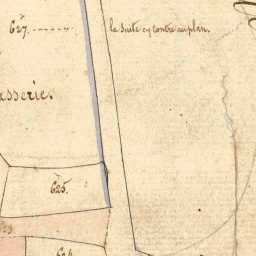 627.
la Suite cy contre au plan.
asserie.
625.
624